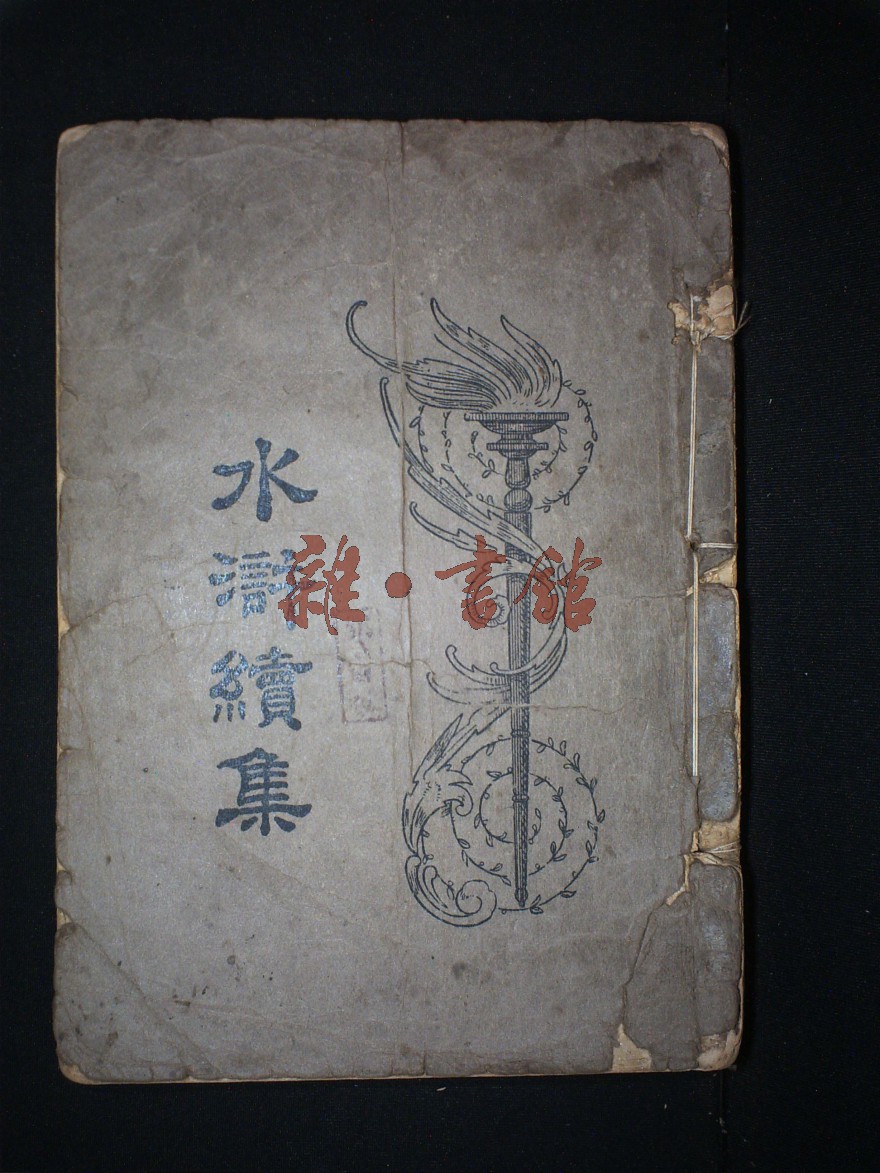 水滸續集
雜·書館